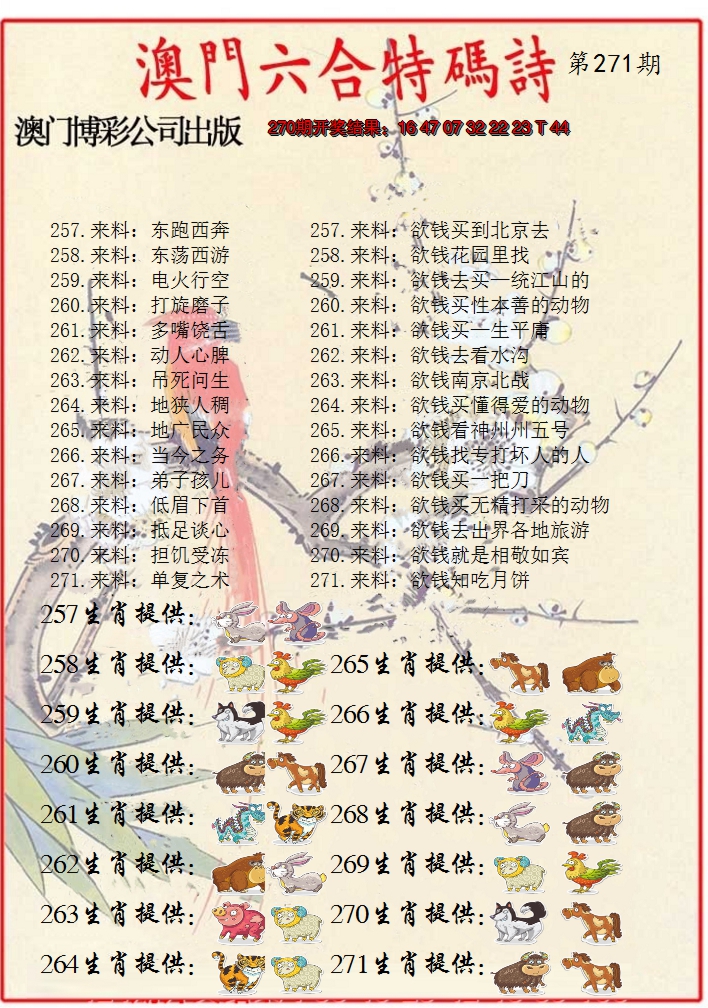 澳門六合特碼詩 第271期
澳门博彩公司出版 270期开奖结果：16 47 07 32 22 23 T 44
257.来料：东跑西奔 257.来料：欲钱买到北京去
258.来料：东荡西游 258.来料：欲钱花园里找
259.来料：电火行空 259.来料：欲钱去买一统江山的
260.来料：打旋磨子 260.来料：欲钱买性本善的动物
261.来料：多嘴饶舌 261.来料：欲钱买一生平庸
262.来料：动人心脾 262.来料：欲钱去看水沟
263.来料：吊死问生 263.来料：欲钱南京北战
264.来料：地狭人稠 264.来料：欲钱买懂得爱的动物
265.来料：地广民众 265.来料：欲钱看神州州五号
266.来料：当今之务 266.来料：欲钱找专打坏人的人
267.来料：弟子孩儿 267.来料：欲钱买一把刀
268.来料：低眉下首 268.来料：欲钱买无精打采的动物
269.来料：抵足谈心 269.来料：欲钱去出界各地旅游
270.来料：担饥受冻 270.来料：欲钱就是相敬如宾
271.来料：单复之术 271.来料：欲钱知吃月饼
257生肖提供：
258生肖提供： 265生肖提供：
259生肖提供： 266生肖提供：
260生肖提供： 267生肖提供：
261生肖提供： 268生肖提供：
262生肖提供： 269生肖提供：
263生肖提供： 270生肖提供：
264生肖提供： 271生肖提供：